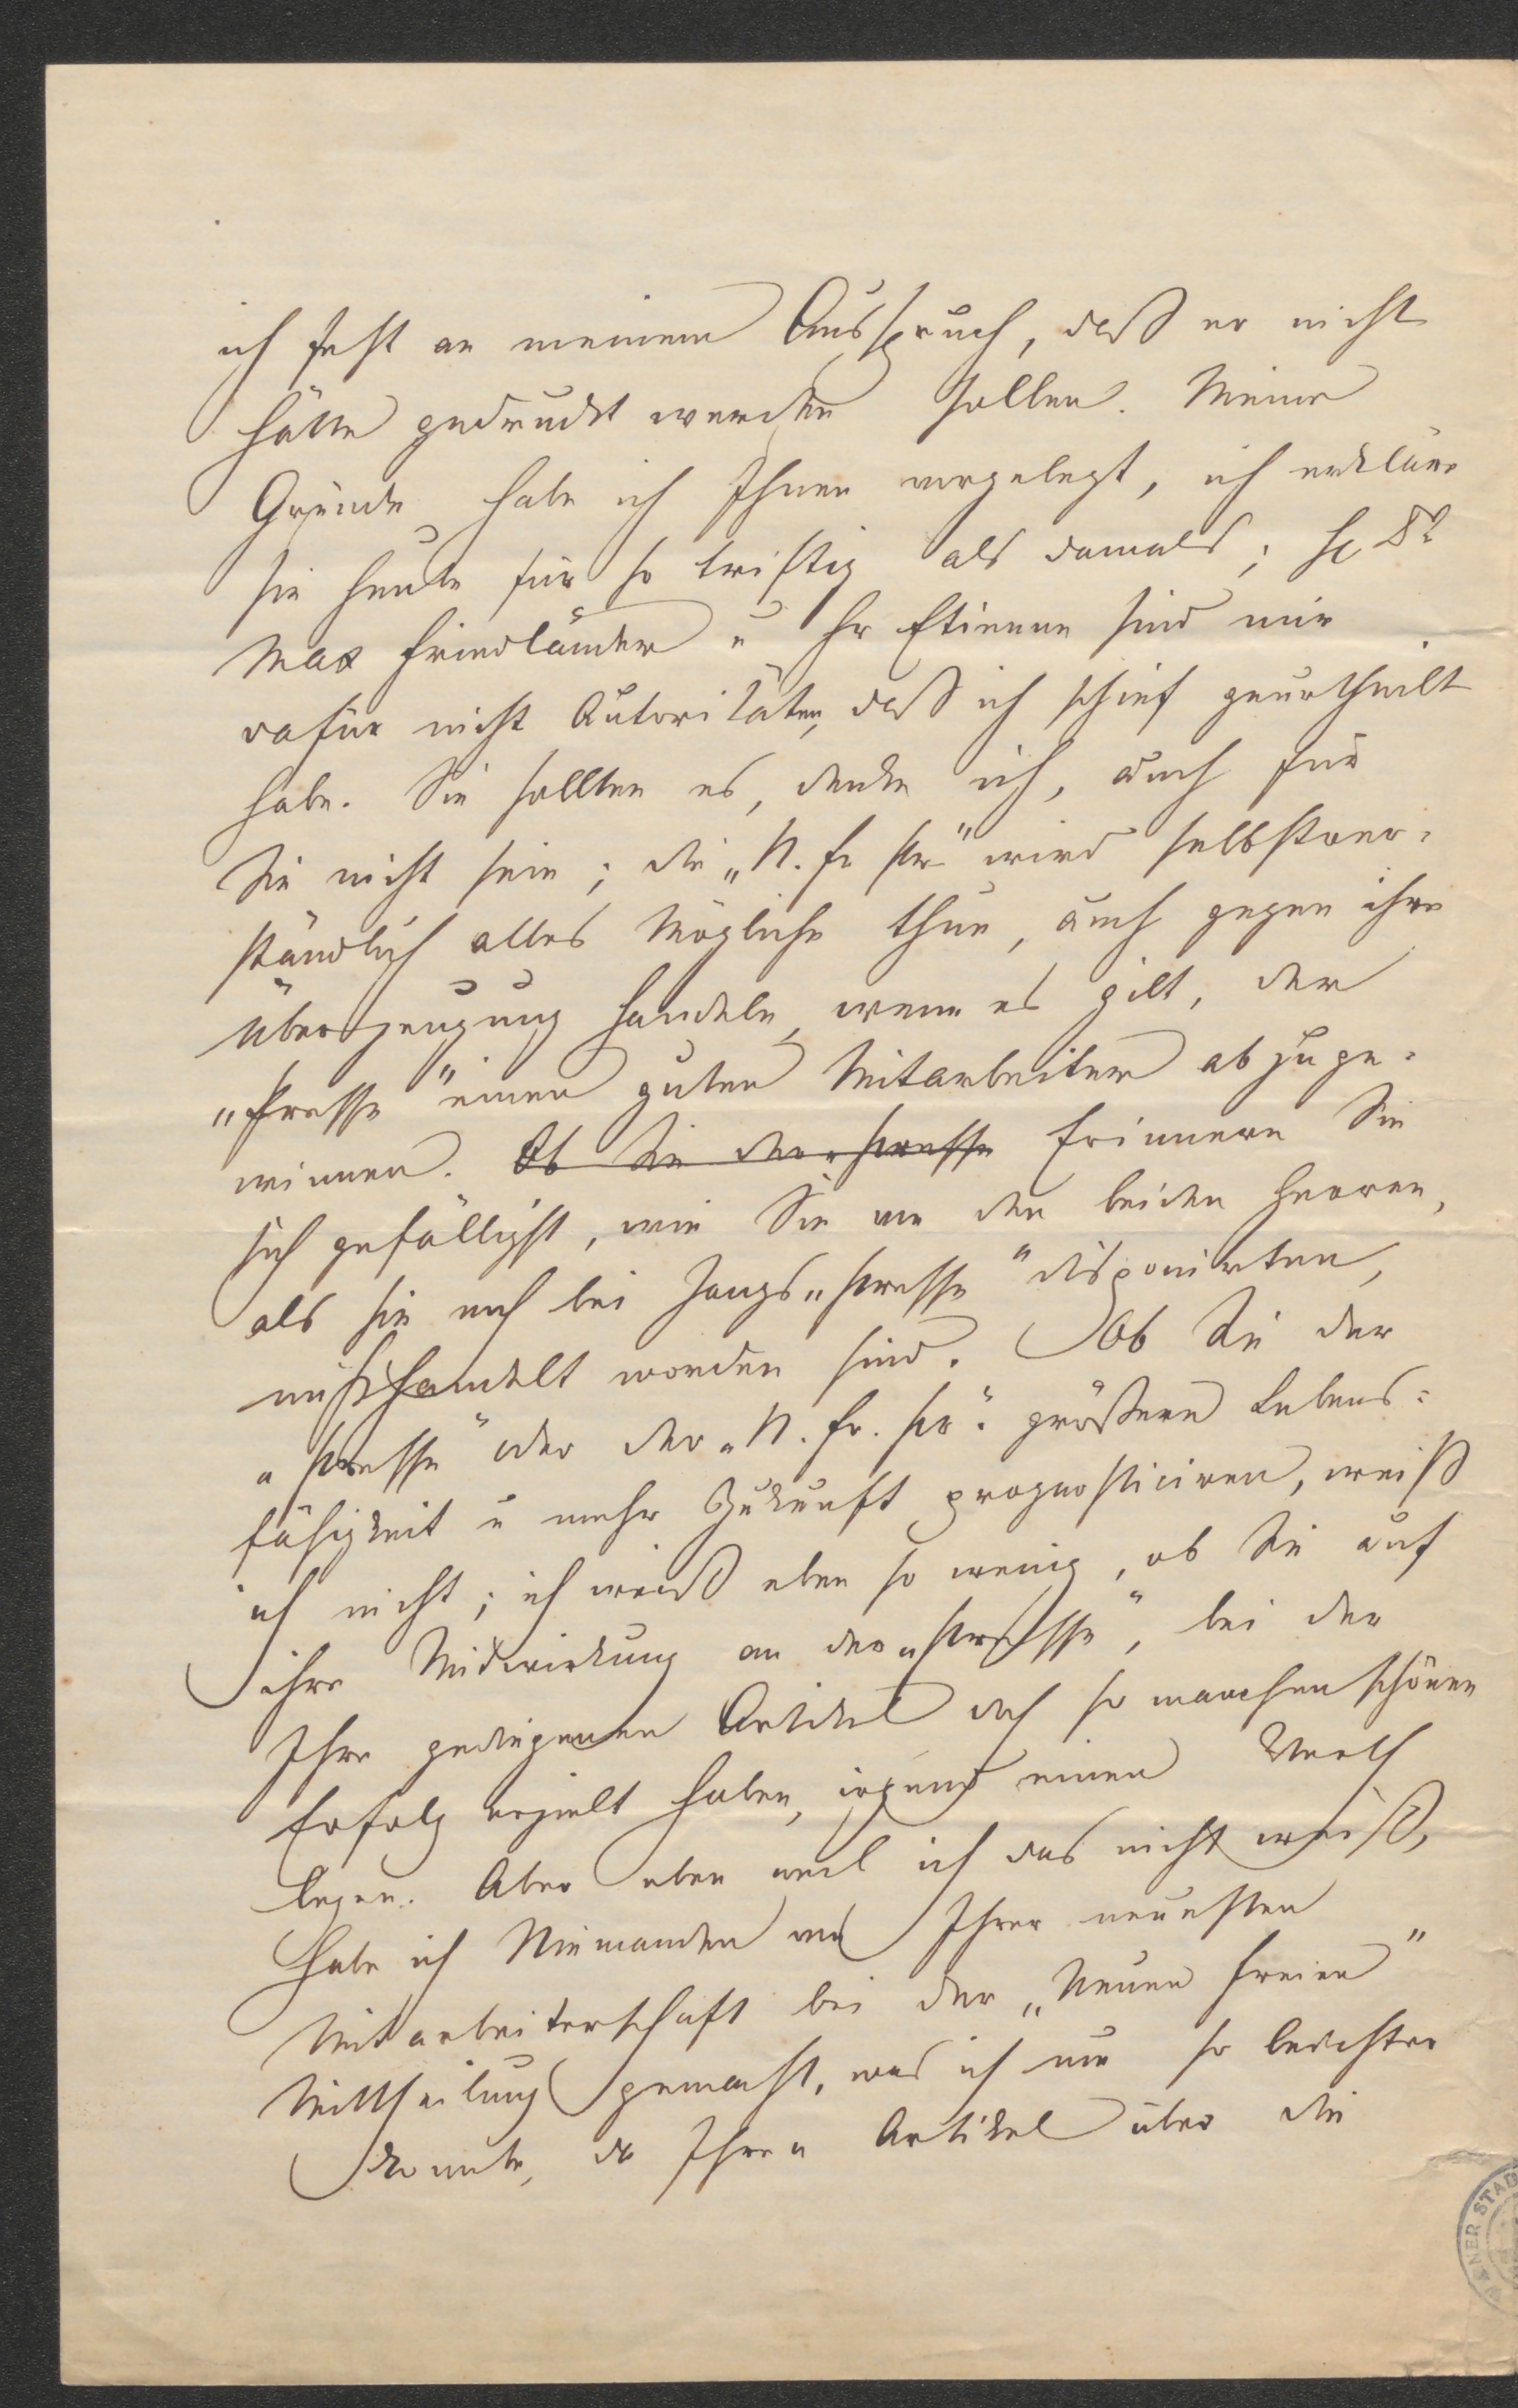 ich fest an meinem Ausspruch, daß er nicht
hätte gedruckt werden sollen. Meine
Gründe habe ich Ihnen vorgelegt, ich erkläre
sie heute für so triftig als damals; H Dr
Max Friedländer u Hr Etienne sind mir
dafür nicht Autoritäten, daß ich schief geurtheilt
habe. Sie sollten es, denke ich, auch für
Sie nicht sein; die „N. fr Pr“ wird selbstver-
ständlich alles Mögliche thun, auch gegen ihre
Überzeugung handeln, wenn es gilt, der
„Presse“ einen guten Mitarbeiter abzuge-
winnen. Ob Sie der Presse Erinnern Sie
sich gefälligst, wie Sie von den beiden Herren,
als sie noch bei Zangs „Presse“ disponirten,
mißhandelt worden sind. Ob Sie der
„Presse“ oder der „N. fr. Pr.“ größere Lebens-
fähigkeit u mehr Zukunft prognosticiren, weiß
ich nicht; ich weiß eben so wenig, ob Sie auf
ihre Mitwirkung an der „Presse“, bei der
Ihre gediegenen Artikel doch so manchen schönen
Erfolg erzielt haben, irgend einen Werth
legen. Aber eben weil ich das nicht weiß,
habe ich Niemanden von Ihrer neuesten
Mitarbeiterschaft bei der „Neuen Freien“
Mittheilung gemacht, was ich um so leichter
konnte, da Ihren Artikel über die
WIENER STAD